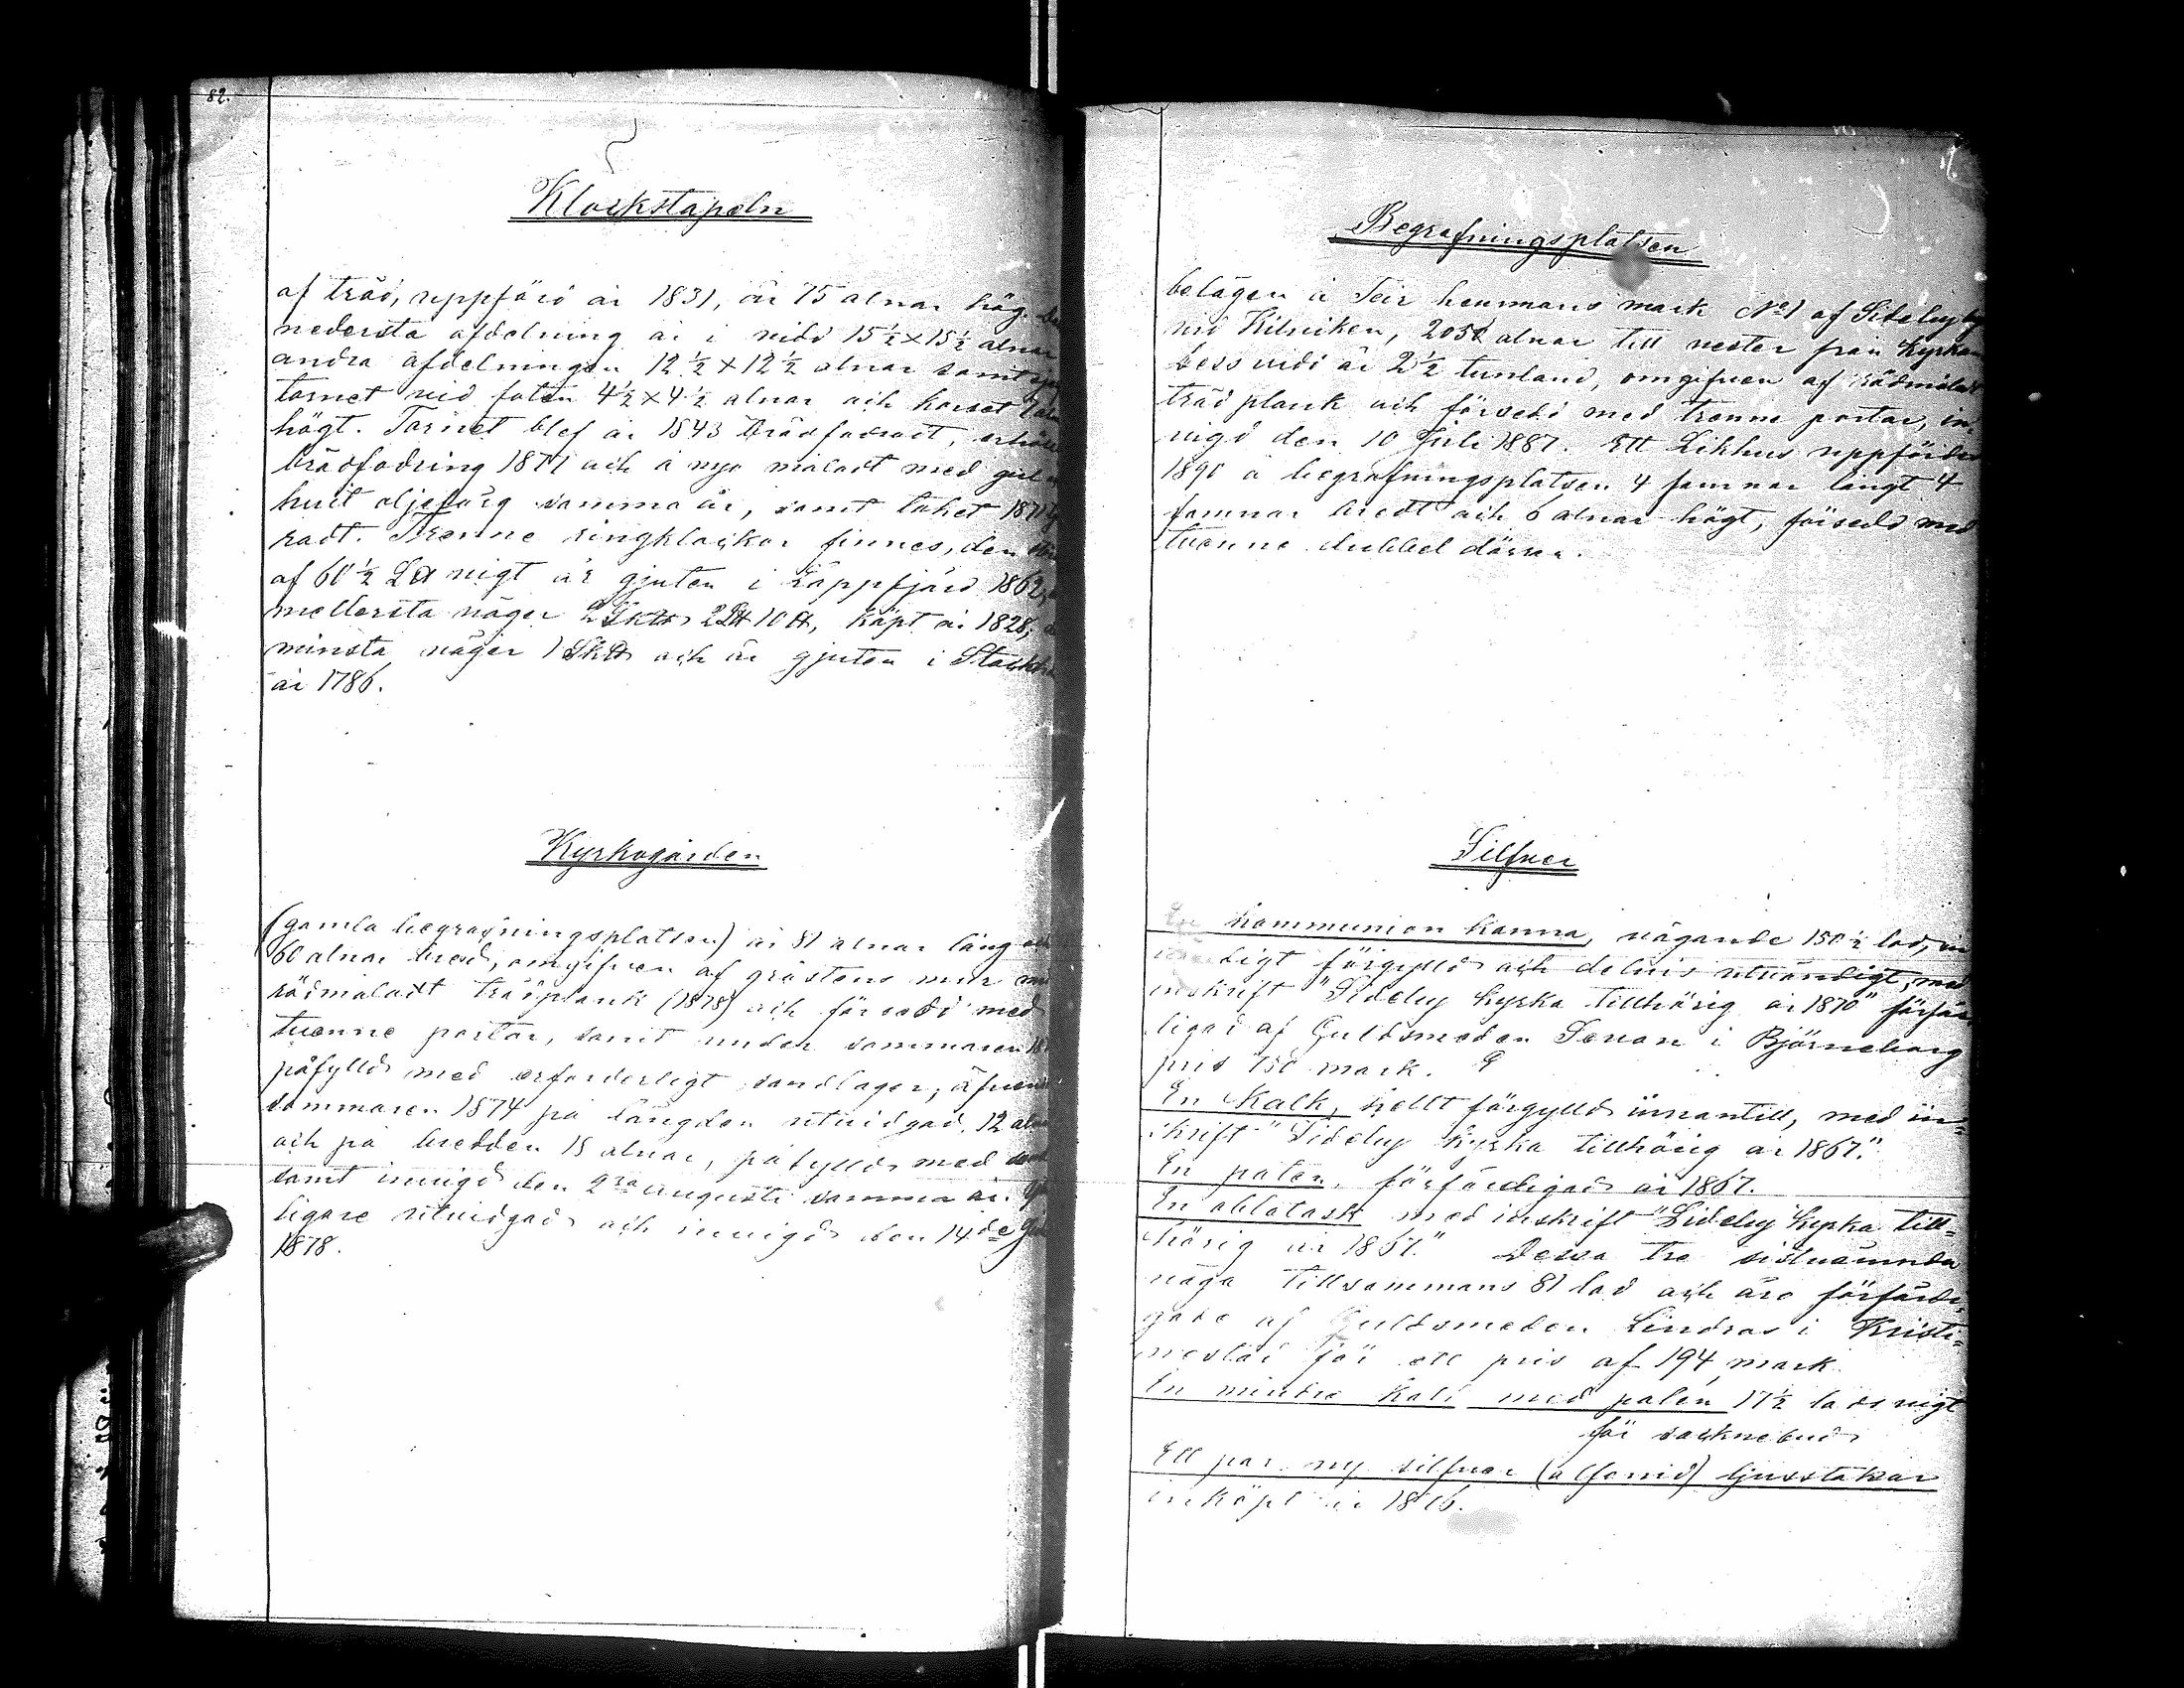 82.
Klockstapeln
af träd, uppförd år 1831, är 75 alnar hög.
nedersta afdelning är i vidd 15½ × 15½ alnar
andra afdelningen 12½ × 12½ alnar samt
tornet vid foten 4½ × 4½ alnar och korset
högt. Tornet blef år 1843 brädfodradt, erhöll
brädfodring 1871 och å nyo måladt med gul
hvit oljefärg samma år, samt taket 1871
radt. Trenne ringklockor finnes, den
af 60½ L℔ vigt är gjuten i Lappfjärd 1862,
mellersta väger 2 Sk℔ 2 L℔ 10 ℔, köpt år 1828,
minsta väger 1 Sk℔ och är gjuten i Stockh
år 1786.
Kyrkogården
(gamla begrafningsplatsen) är 81 alnar lång och
60 alnar bred, omgifven af gråstens mur
rödmåladt trädplank (1878) och försedd med
tvenne portar, samt under sommaren
påfylld med erforderligt sandlager, äfven
sommaren 1874 på längden utvidgad 12
och på bredden 15 alnar, påfylld med
samt invigd den 2ra augusti samma år.
ligare utvidgad och invigd den 14de
1878.
Begrafningsplatsen
belägen å Teir hemmans mark No 1 af Sideby by
vid Kilviken, 2050 alnar till vester från kyrkan
Dess vidd är 2½ tunland, omgifven af rödmåladt
träd plank och försedd med trenne portar, in-
vigd den 10 Juli 1887. Ett Likhus uppfördes
1890 å begrafningsplatsen 4 famnar långt 4
famnar bredt och 6 alnar högt, försedd med
tvenne dubbel dörrar.
Silfver
En kommunion kanna, vägande 150½ lod, in
vändigt förgylld och delvis utvändigt, med
inskrift "Sideby kyrka tillhörig år 1870" förfär
digad af Guldsmeden i Björneborg
pris 750 mark.
En Kalk, helt förgylld innantill, med in=
skrift "Sideby kyrka tillhörig år 1867."
En paten, förfärdigad år 1867.
En oblatask med inskrift "Sideby kyrka till=
hörig år 1867." Dessa tre sistnämnda
väga tillsammans 81 lod och äro förfärdi=
gade af Guldsmeden Lindros i Kristi=
nestad för ett pris af 194 mark.
En mindre kalk med paten 17½ lods vigt
för socknebud
Ett par ny silfver (alfenid) ljusstakar
inköpt år